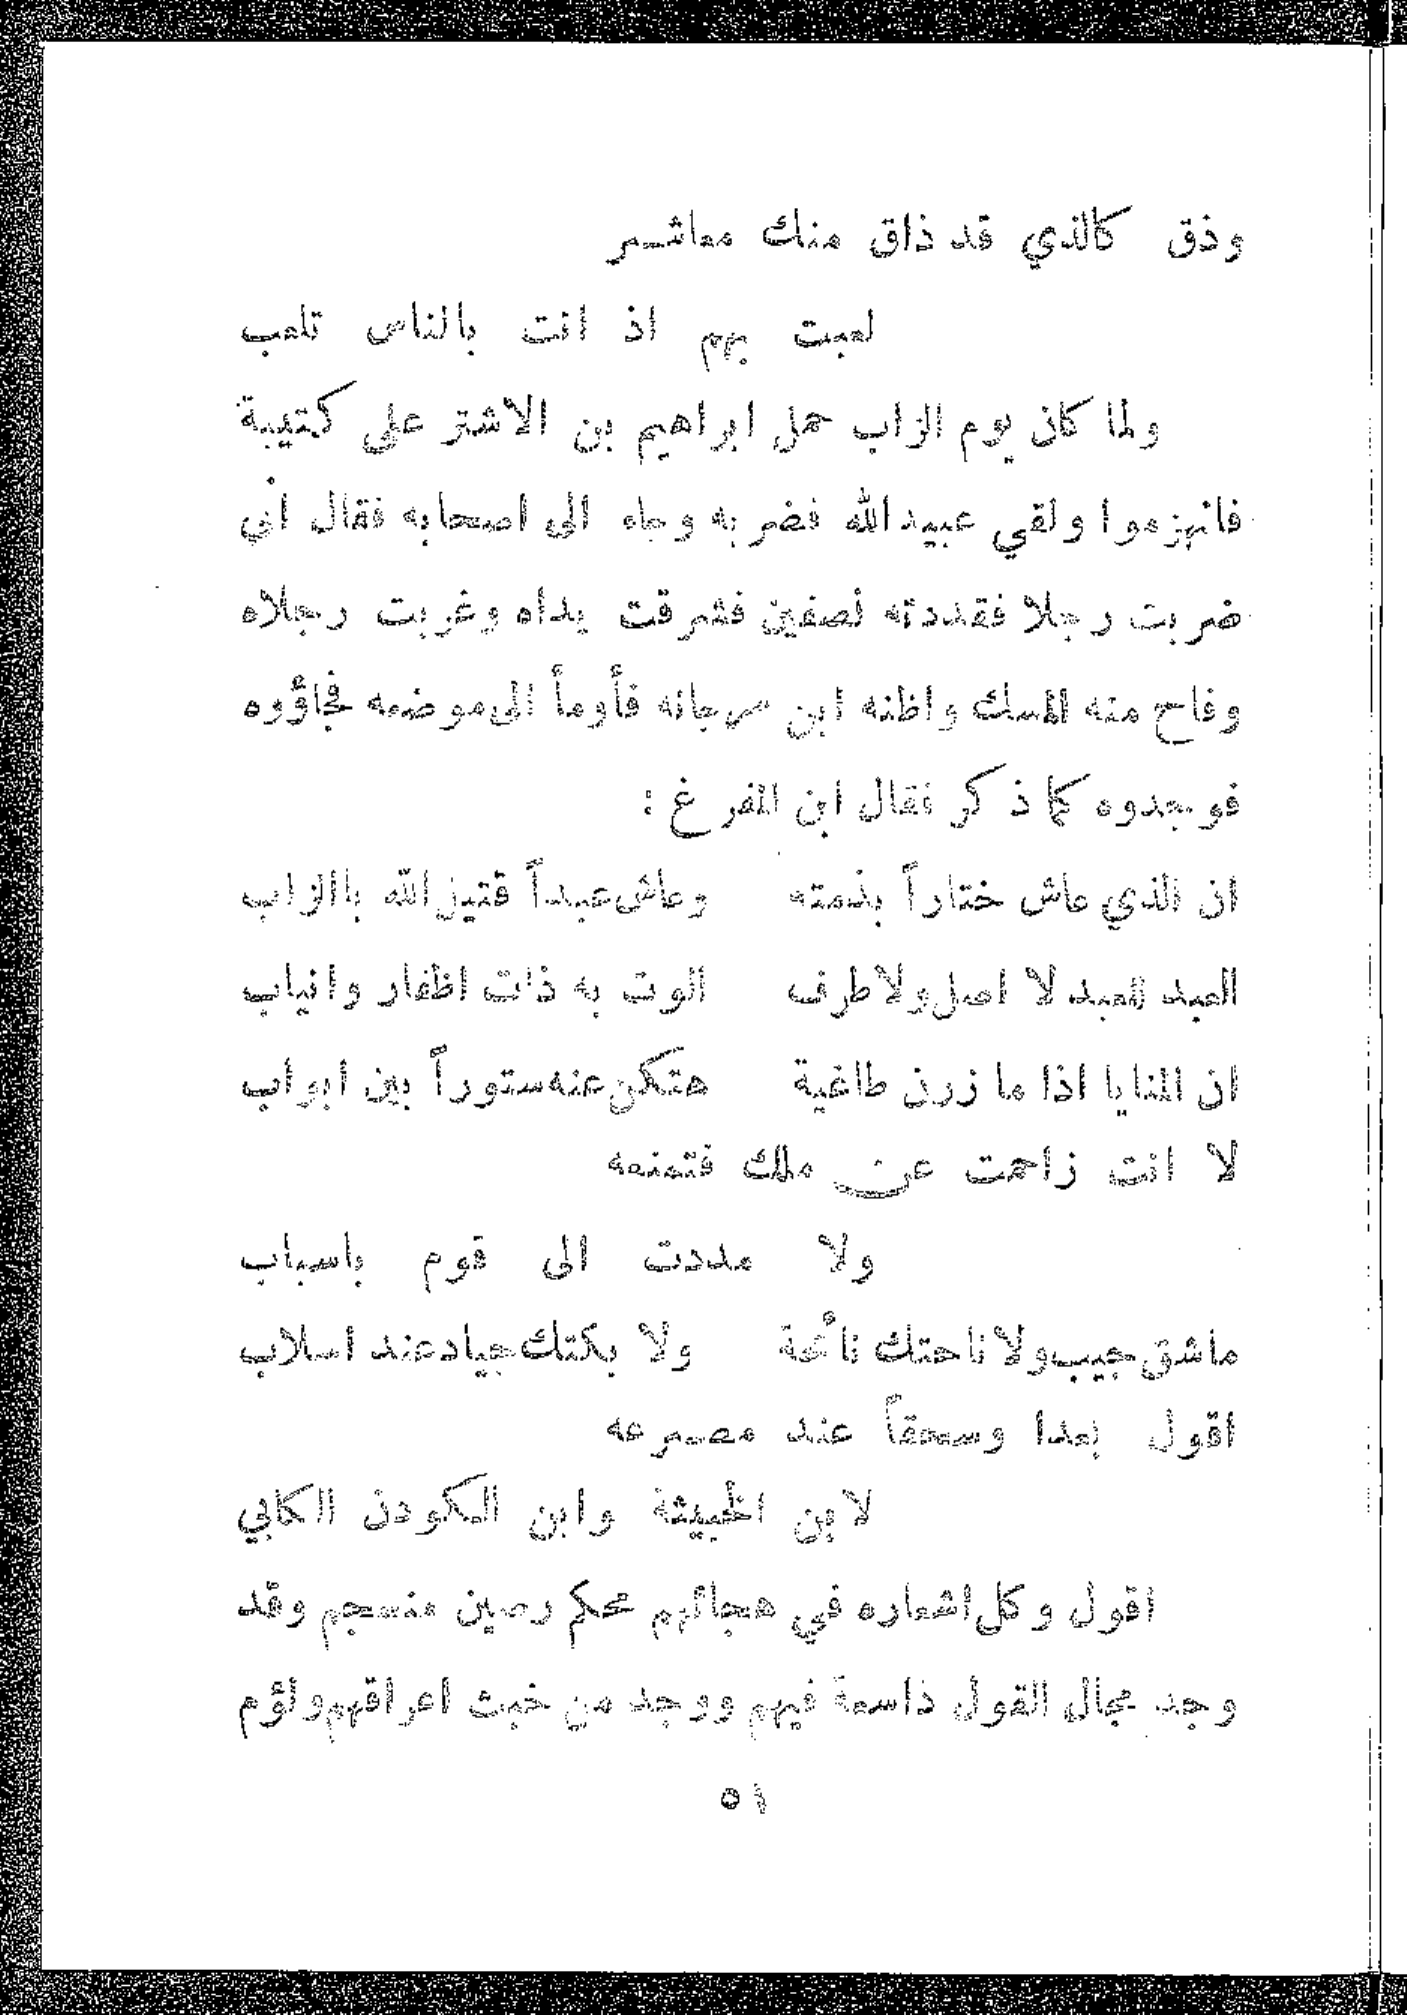 وذق كالذي قد ذاق منك معاشر
لعبت بهم اذ انت بالناس تلعب
ولما كان يوم الزاب حمل ابراهيم بن الاشتر على كتيبة
فانهزموا ولقي عبيدالله فضربه وجاء الى اصحابه فقال اني
ضربت رجلا فقددته نصفين فشرقت يداه وغربت رجلاه
وفاح منه المسك واظنه ابن مرجانه فأومأ الى موضعه فجاؤوه
فوجدوه كما ذكر فقال ابن المفرغ :
ان الذي عاش ختاراً بذمته وعاش عبداً قتيز الله باالزاب
العبد للعبد لا اصل ولا طرف الوت به ذات اظفار وانياب
ان المنايا اذا ما زرن طاغية هتكن عنه ستوراً بين ابواب
لا انت زاحمت عن ملك فتمنعه
ولا مددت الى قوم باسباب
ماشق جيب ولا ناحتك نائحة ولا بكتك جياد عند اسلاب
اقول بعدا وسحقاً عند مصرعه
لابن الخبيثة وابن الكودن الكابي
اقول وكل اشعاره في هجائهم محكم رصين منسجم وقد
وجد مجال القول ذاسعة فيهم ووجد من خبث اعراقهم ولؤم
٥١